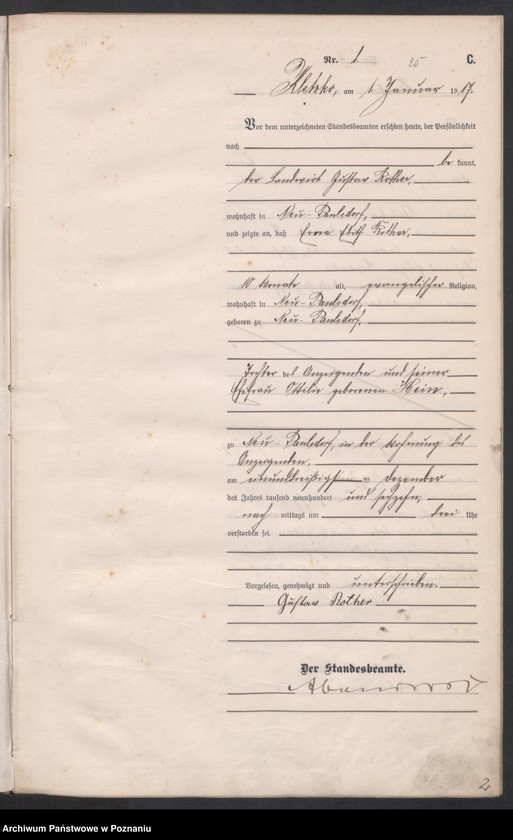 Nr. 1 25 C.
Kletzko, am 1. Januar 1917.
Vor dem unterzeichneten Standesbeamten erschien heute, der Persönlichkeit
nach
be kannt,
der Landwirt Gustav Rother,
wohnhaft in Neu-Paulsdorf,
und zeigte an, daß Edith Rother,
10 Monate alt, evangelischer Religion,
wohnhaft in Neu-Paulsdorf,
geboren zu Neu-Paulsdorf,
Tochter des Anzeigenden und seiner
Ehefrau Ottilie geborenen Klein,
zu Neu-Paulsdorf, in der Wohnung des
Anzeigenden,
am einunddreißigsten Dezember
des Jahres tausend neunhundert und sechzehn,
nach mittags um drei Uhr
verstorben sei.
Vorgelesen, genehmigt und unterschrieben.
Gustav Rother
Der Standesbeamte.
2
Archiwum Państwowe w Poznaniu